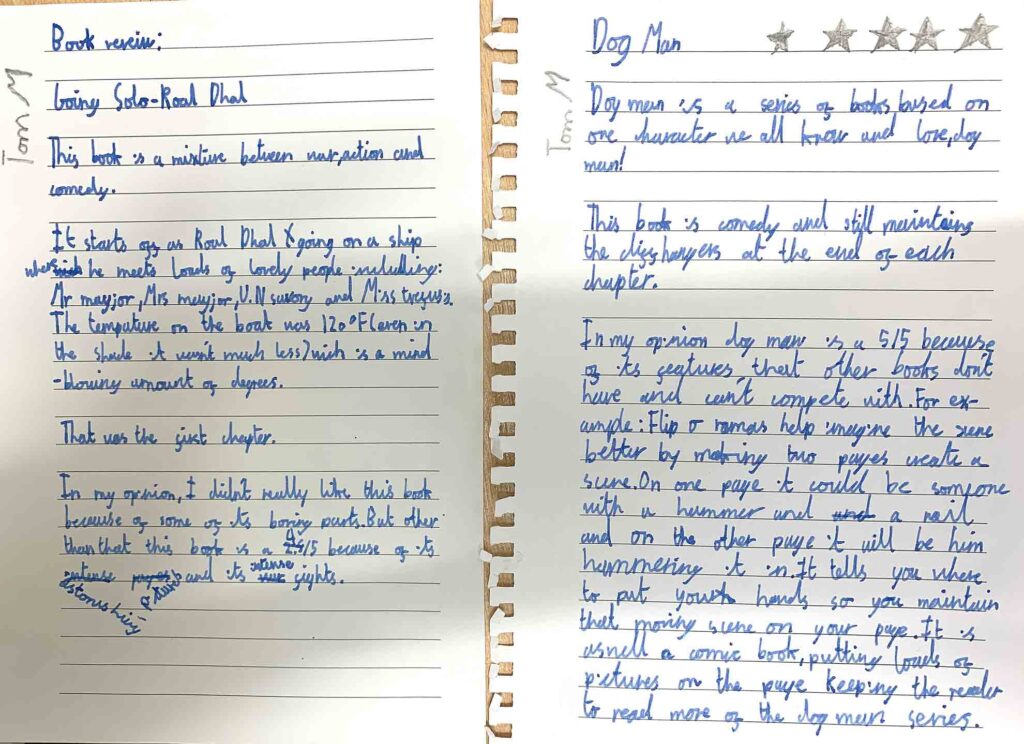 Tom M
Book reveiw:
Going Solo-Roal Dhal
This book is a mixture between war,action and
comedy.
It starts off as Roal Dhal going on a ship
where he meets loads of lovely people including:
Mr mayjor, Mrs mayjor, U.N savory and Miss
The tempature on the boat was 120°F(even in
the shade it wasn't much less)wich is a mind
-blowing amount of degrees.
That was the first chapter.
In my opnion, I didn't really like this book
because of some of its boring parts.But other
than that this book is a /5 because of its
and its intense fights.
astonushing
Tom M
Dog Man
Dog man is a series of books based on
one character we all know and love,dog
man!
This book is comedy and still maintains
the cliffhangers at the end of each
chapter.
In my opinion dog man is a 5/5 because
of its features, that other books don't
have and can't compete with.For ex-
ample: Flip o ramas help imagine the scene
better by making two pages create a
scene.On one page it could be someone
with a hammer and and a nail
and on the other page it will be him
hammering it in.It tells you where
to put your hands so you maintain
that moving scene on your page.It is
aswell a comic book, putting loads of
pictures on the page keeping the reader
to read more of the dog man series.